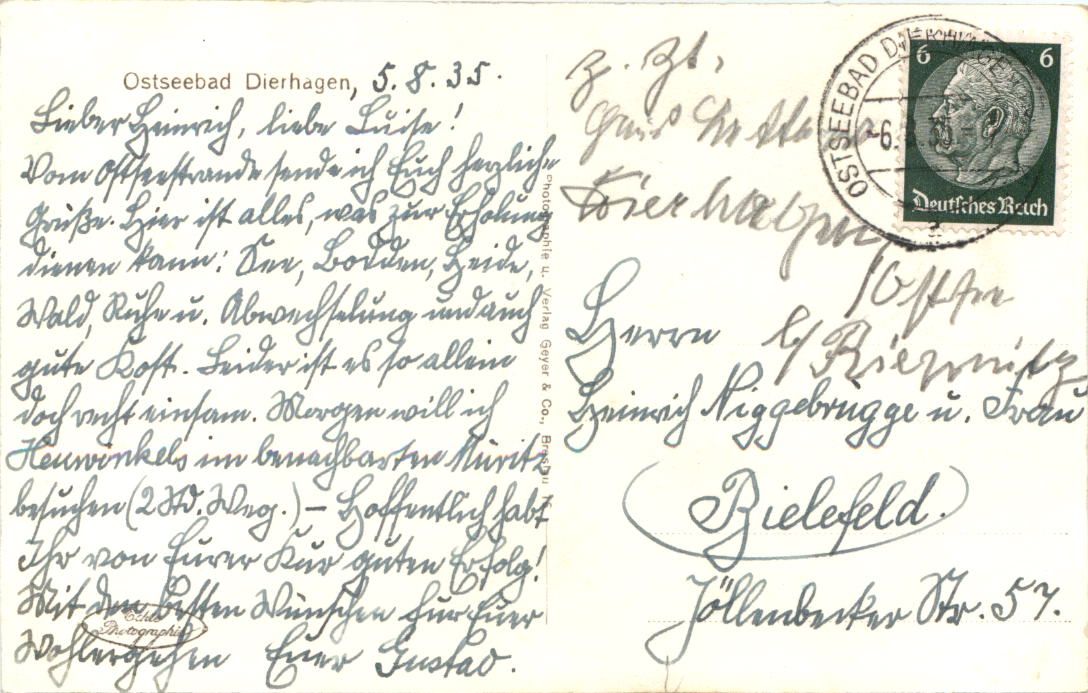 Ostseebad Dierhagen, 5.8.35.
Lieber Heinrich, liebe Luise!
Vom Ostseestrande sende ich Euch herzliche
Grüße. Hier ist alles, was zur Erholung
dienen kann: See, Bodden, Heide,
Wald, Ruhe u. Abwechselung und auch
gute Kost. Leider ist es so allein
doch recht einsam. Morgen will ich
Heuwinkels im benachbarten Müritz
besuchen (2 Std. Weg.) – Hoffentlich habt
Ihr von Eurer Kur guten Erfolg!
Mit den besten Wünschen für Euer
Wohlergehen Euer Gustav.
Echte
Photographie
Photographie u. Verlag Geyer & Co., Breslau
z. Zt.
Haus
Dierhagen
/Ostsee
b/
OSTSEEBAD DIERHAGEN
-6.
a
6 6
Deutsches Reich
Herrn
Heinrich Niggebrügge u. Frau
(Bielefeld.)
Jöllenbecker Str. 57.